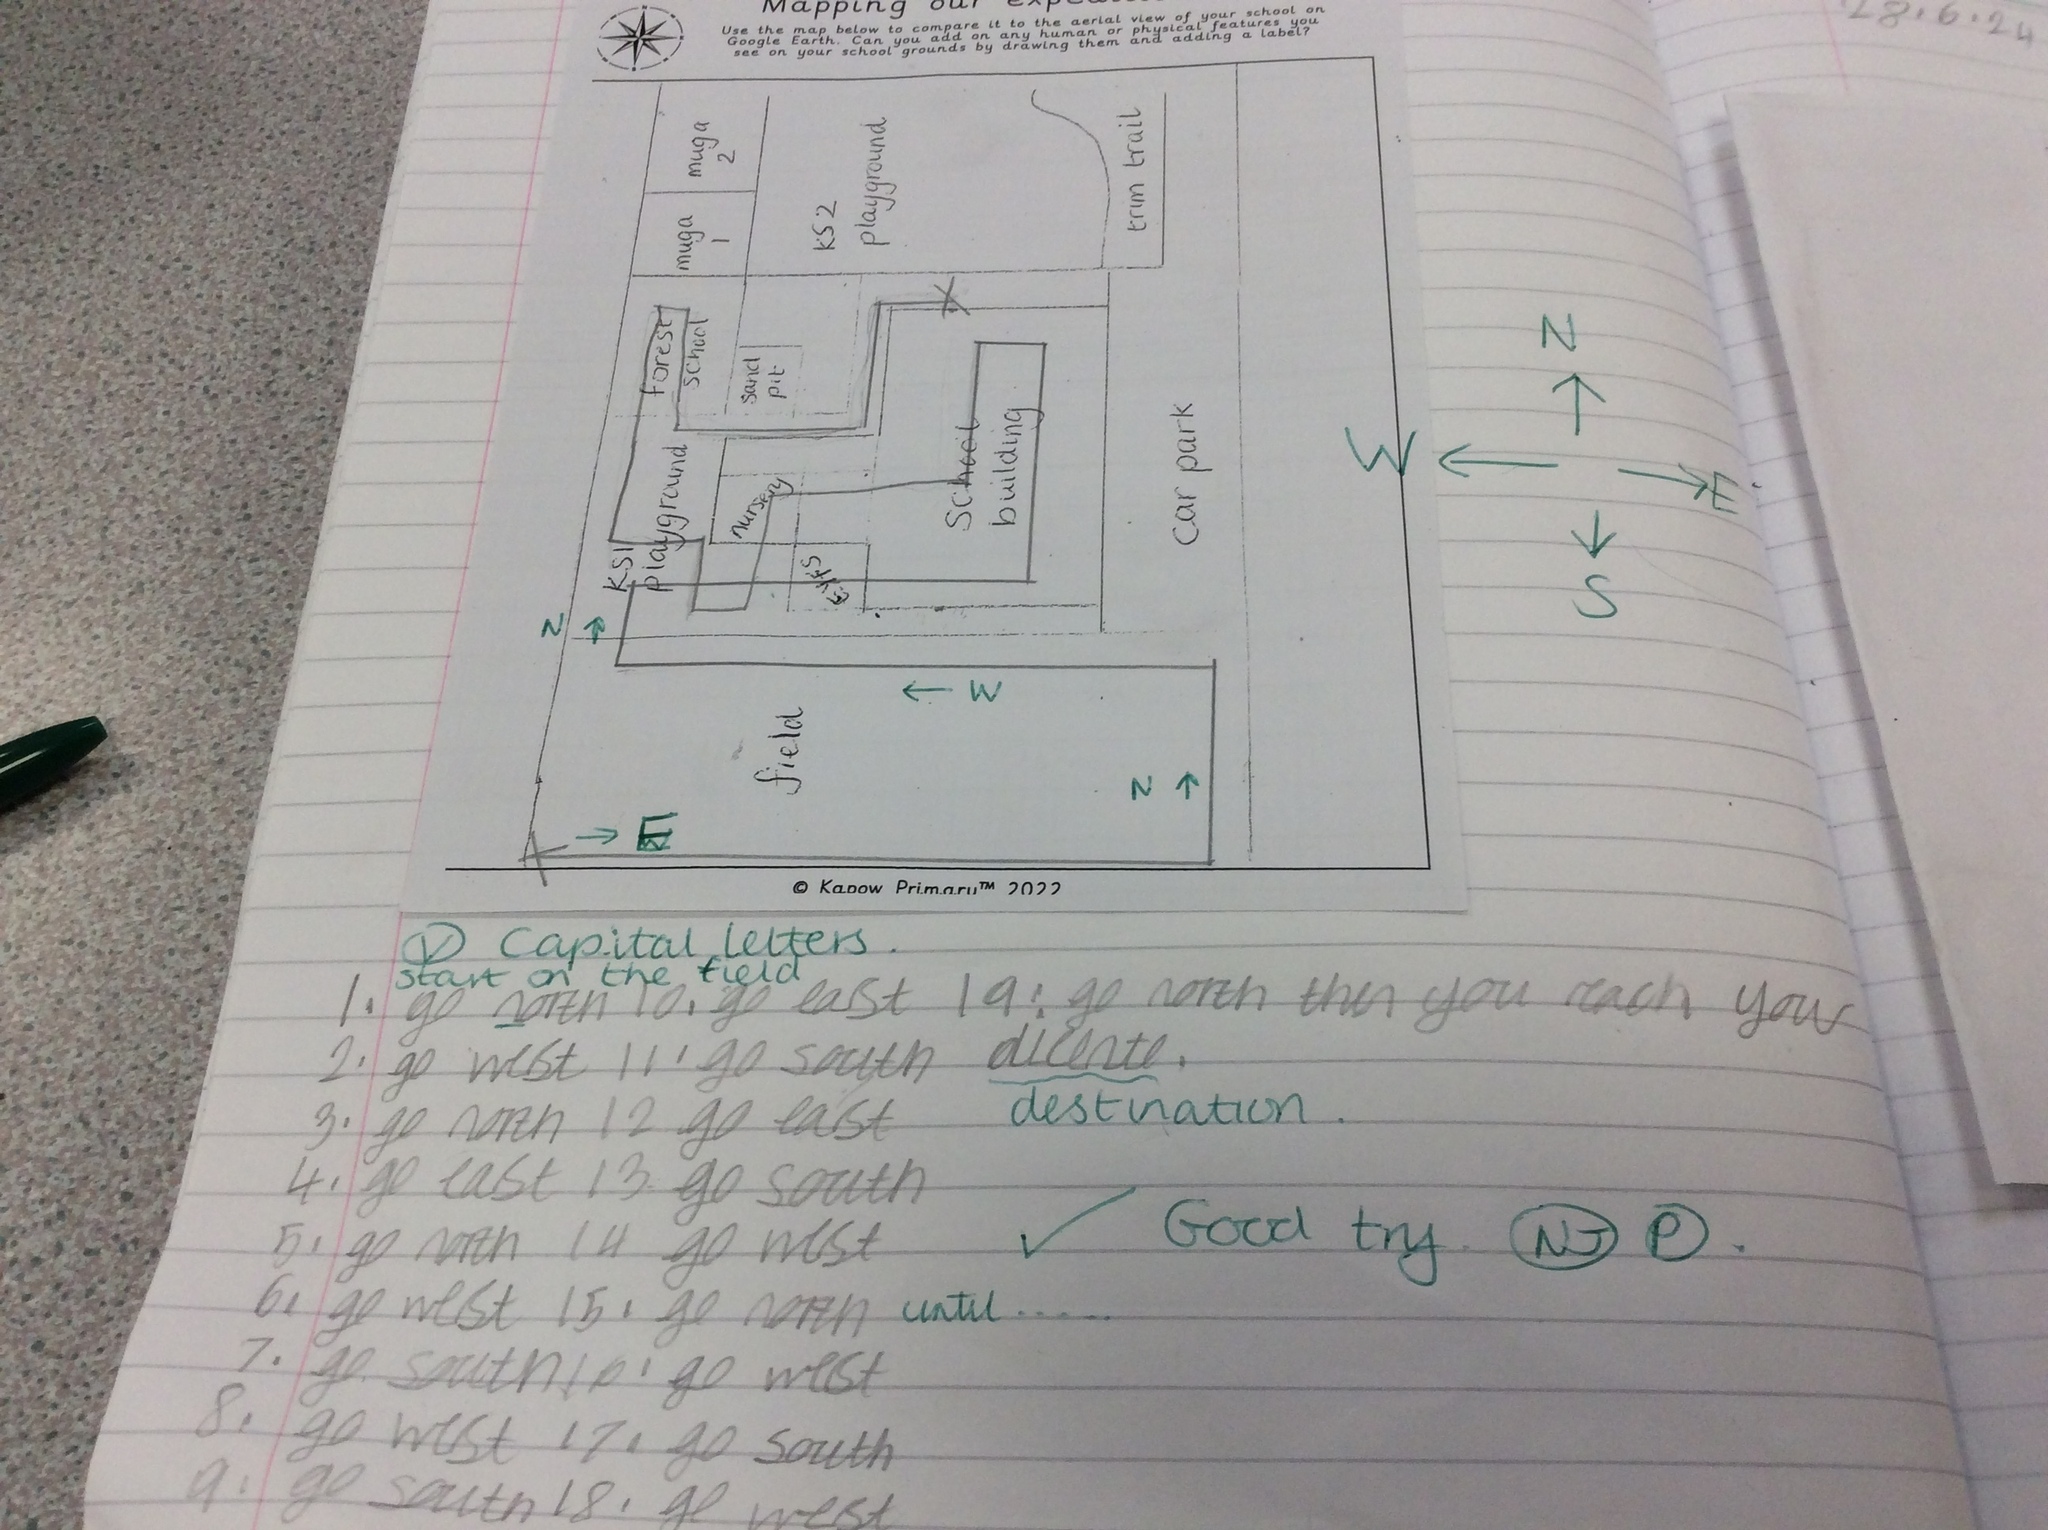 Mapping our
Use the map below to compare it to the aerial view of your school on
Google Earth. Can you add on any human or physical features you
see on your school grounds by drawing them and adding a label?
28.6.24
muga
2
muga
1
KS2
playground
trim trail
Forest
school
sand
pit
KS1
playground
nursery
EYFS
School
building
car park
field
N
W
N
E
N
W
E
S
© Kapow Primary™ 2022
Capital letters.
start on the field
1. go north 10. go east 19. go north then you reach your
2. go west 11. go south dicente.
destination.
3. go north 12 go east
4. go east 13. go south
5. go north 14 go west
✓ Good try. NS P.
6. go west 15. go north until......
7. go south 16. go west
8. go west 17. go south
9. go south 18. go west